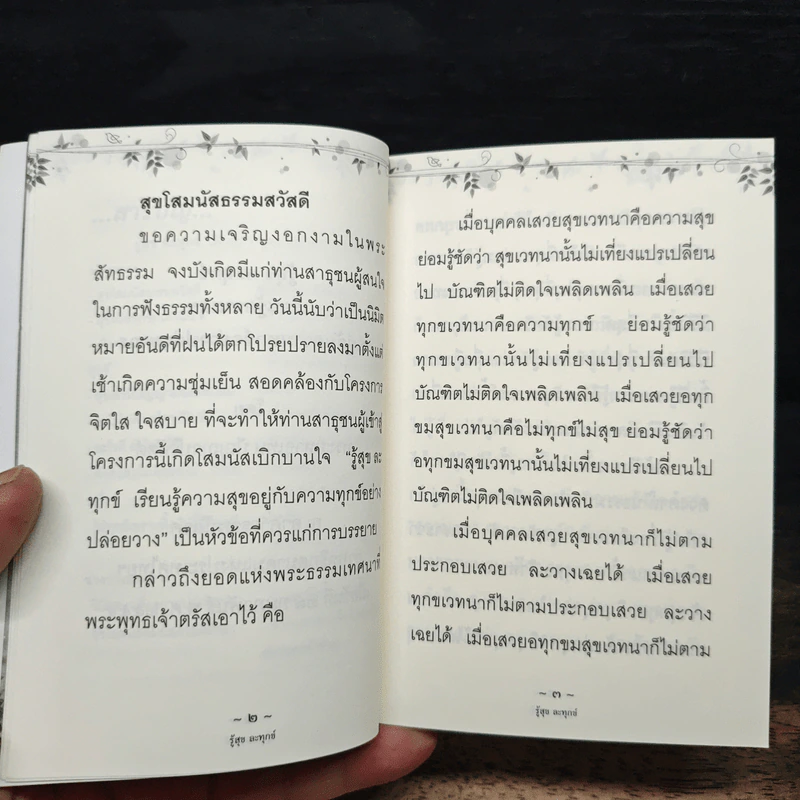 สุขโสมนัสธรรมสวัสดี
ขอความเจริญงอกงามในพระ
สัทธรรม จงบังเกิดมีแก่ท่านสาธุชนผู้สนใจ
ในการฟังธรรมทั้งหลาย วันนี้นับว่าเป็นนิมิต
หมายอันดีที่ฝนได้ตกโปรยปรายลงมาตั้งแต่
เช้าเกิดความชุ่มเย็น สอดคล้องกับโครงการ
จิตใส ใจสบาย ที่จะทำให้ท่านสาธุชนผู้เข้าสู่
โครงการนี้เกิดโสมนัสเบิกบานใจ "รู้สุข ละ
ทุกข์ เรียนรู้ความสุขอยู่กับความทุกข์อย่าง
ปล่อยวาง" เป็นหัวข้อที่ควรแก่การบรรยาย
กล่าวถึงยอดแห่งพระธรรมเทศนาที่
พระพุทธเจ้าตรัสเอาไว้ คือ
~ ๒ ~
รู้สุข ละทุกข์
เมื่อบุคคลเสวยสุขเวทนาคือความสุข
ย่อมรู้ชัดว่า สุขเวทนานั้นไม่เที่ยงแปรเปลี่ยน
ไป บัณฑิตไม่ติดใจเพลิดเพลิน เมื่อเสวย
ทุกขเวทนาคือความทุกข์ ย่อมรู้ชัดว่า
ทุกขเวทนานั้นไม่เที่ยงแปรเปลี่ยนไป
บัณฑิตไม่ติดใจเพลิดเพลิน เมื่อเสวยอทุก
ขมสุขเวทนาคือไม่ทุกข์ไม่สุข ย่อมรู้ชัดว่า
อทุกขมสุขเวทนานั้นไม่เที่ยงแปรเปลี่ยนไป
บัณฑิตไม่ติดใจเพลิดเพลิน
เมื่อบุคคลเสวยสุขเวทนาก็ไม่ตาม
ประกอบเสวย ละวางเฉยได้ เมื่อเสวย
ทุกขเวทนาก็ไม่ตามประกอบเสวย ละวาง
เฉยได้ เมื่อเสวยอทุกขมสุขเวทนาก็ไม่ตาม
~ ๓ ~
รู้สุข ละทุกข์